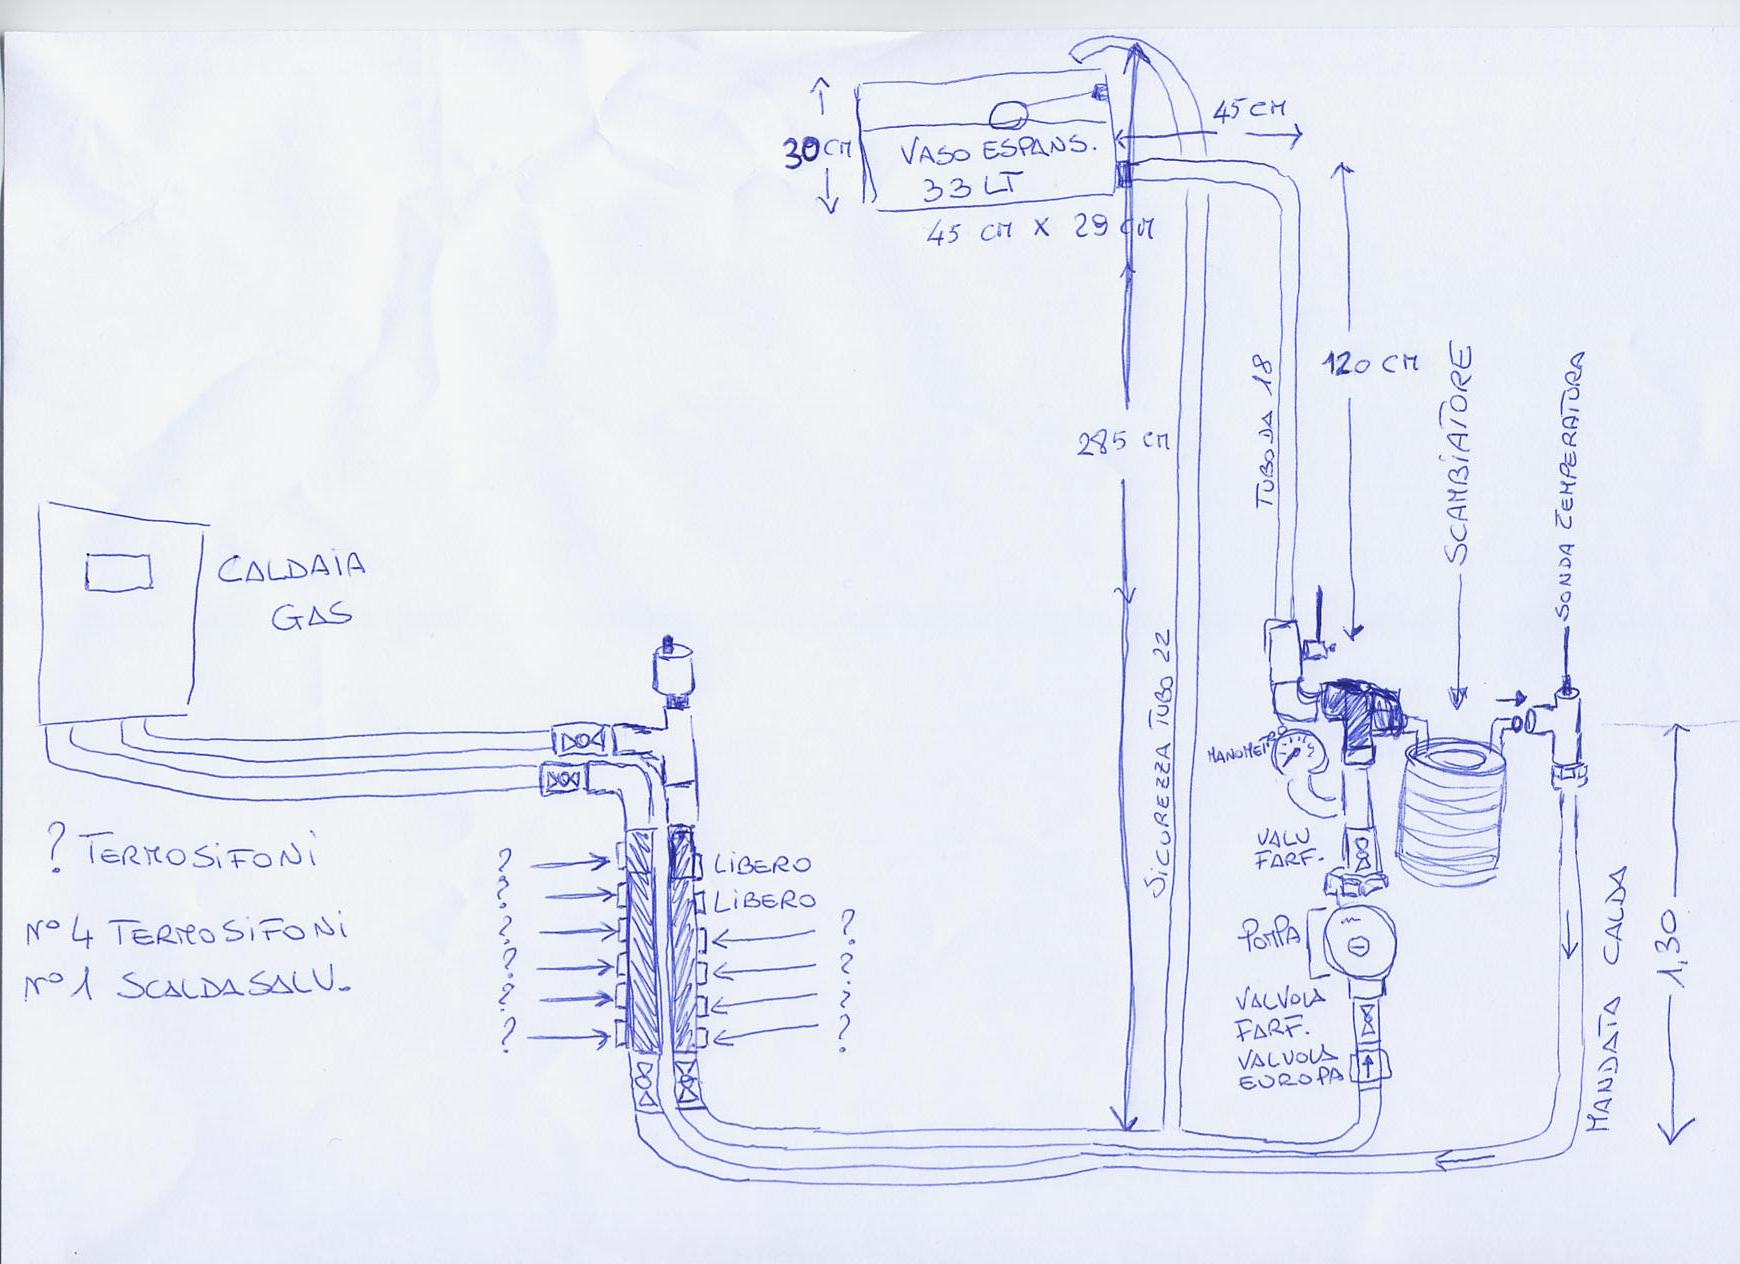 45 CM
30 CM
VASO ESPANS.
33 LT
45 CM X 29 CM
120 CM
285 CM
TUBO DA 18
SCAMBIATORE
SONDA TEMPERATURA
CALDAIA
GAS
SICUREZZA TUBO 22
MANOMETRO
? TERMOSIFONI
N° 4 TERMOSIFONI
N° 1 SCALDASALV.
?
?
?
?
?
?
LIBERO
LIBERO
?
?
?
?
VALV
FARF.
POMPA
VALVOLA
FARF.
VALVOLA
EUROPA
MANDATA CALDA
1,30